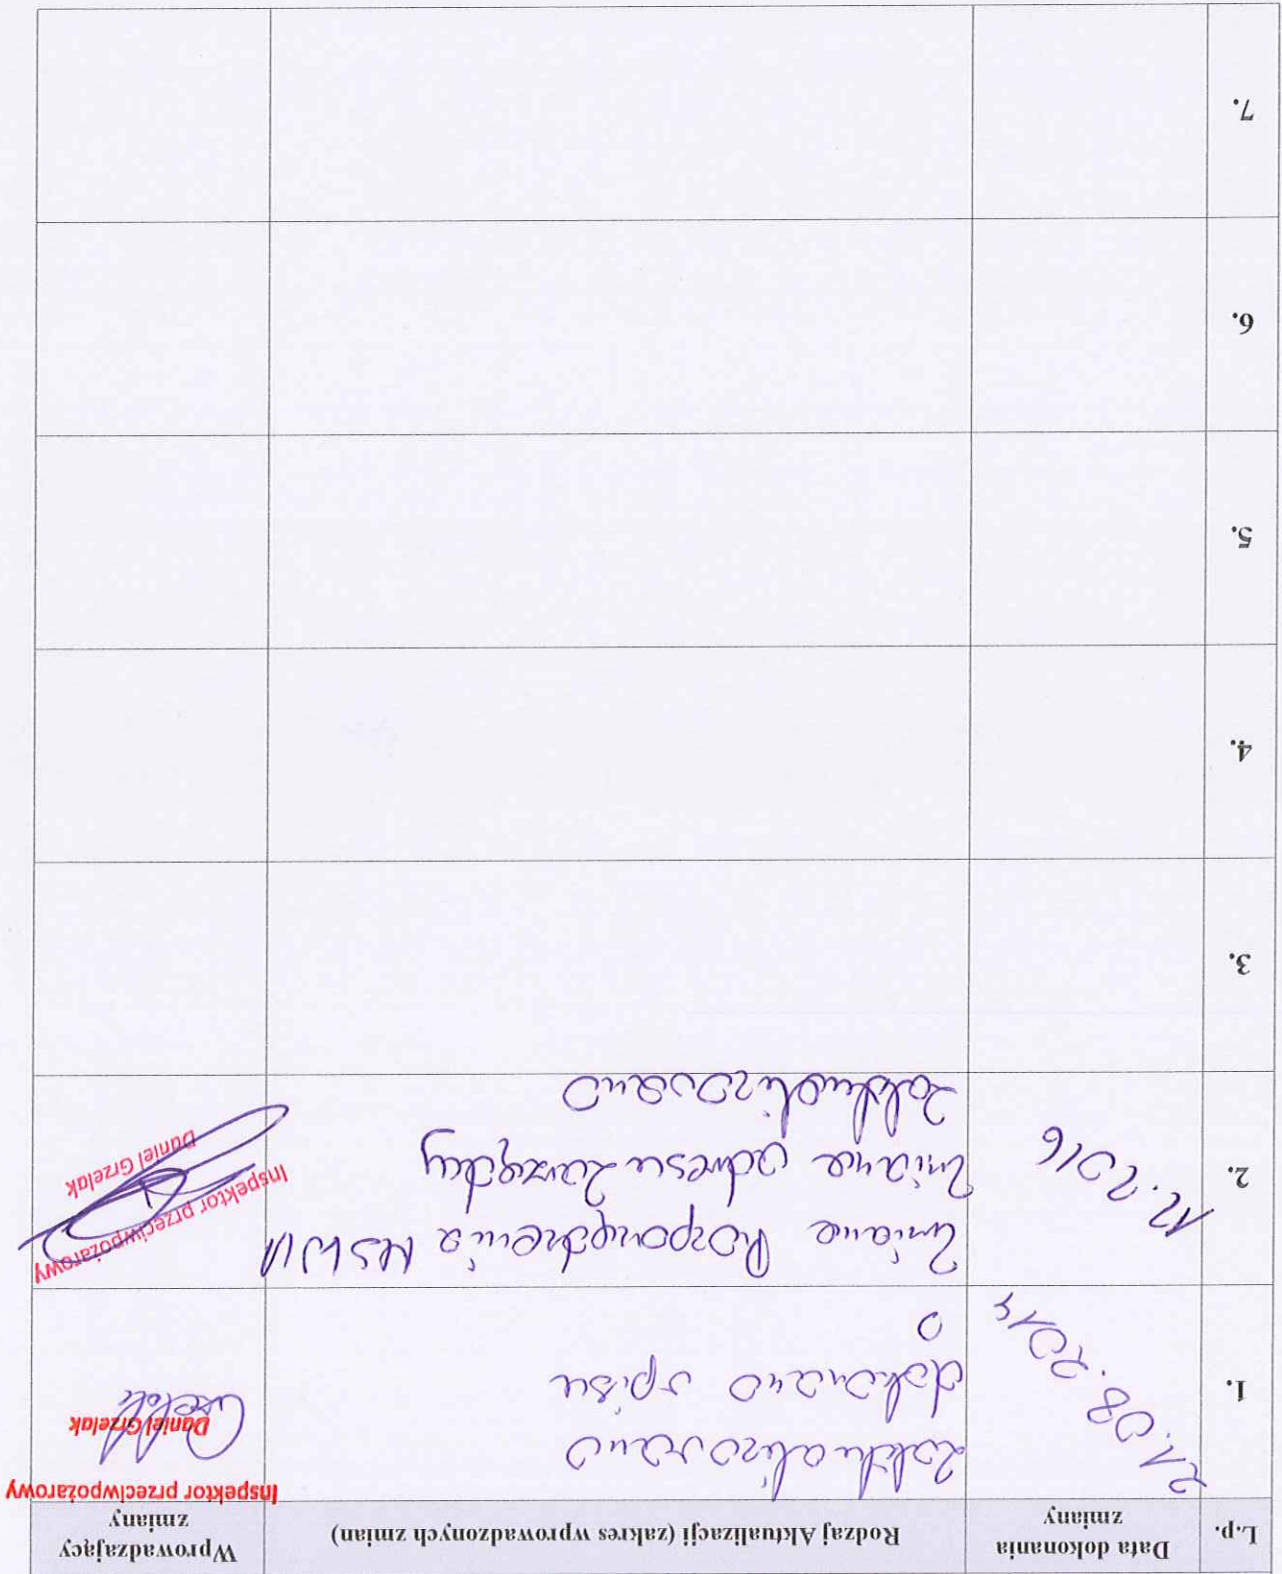 L.p.
Data dokonania
zmiany
Rodzaj Aktualizacji (zakres wprowadzonych zmian)
Wprowadzający
zmiany
1.
21.08.2014
Zaktualizowano
dokonano spisu
Inspektor przeciwpożarowy
Daniel Grzelak
2.
12.2016
Zmiana Rozporządzenia MSWiA
Zmiana adresu Zarządcy
Zaktualizowano
Inspektor przeciwpożarowy
Daniel Grzelak
3.
4.
5.
6.
7.